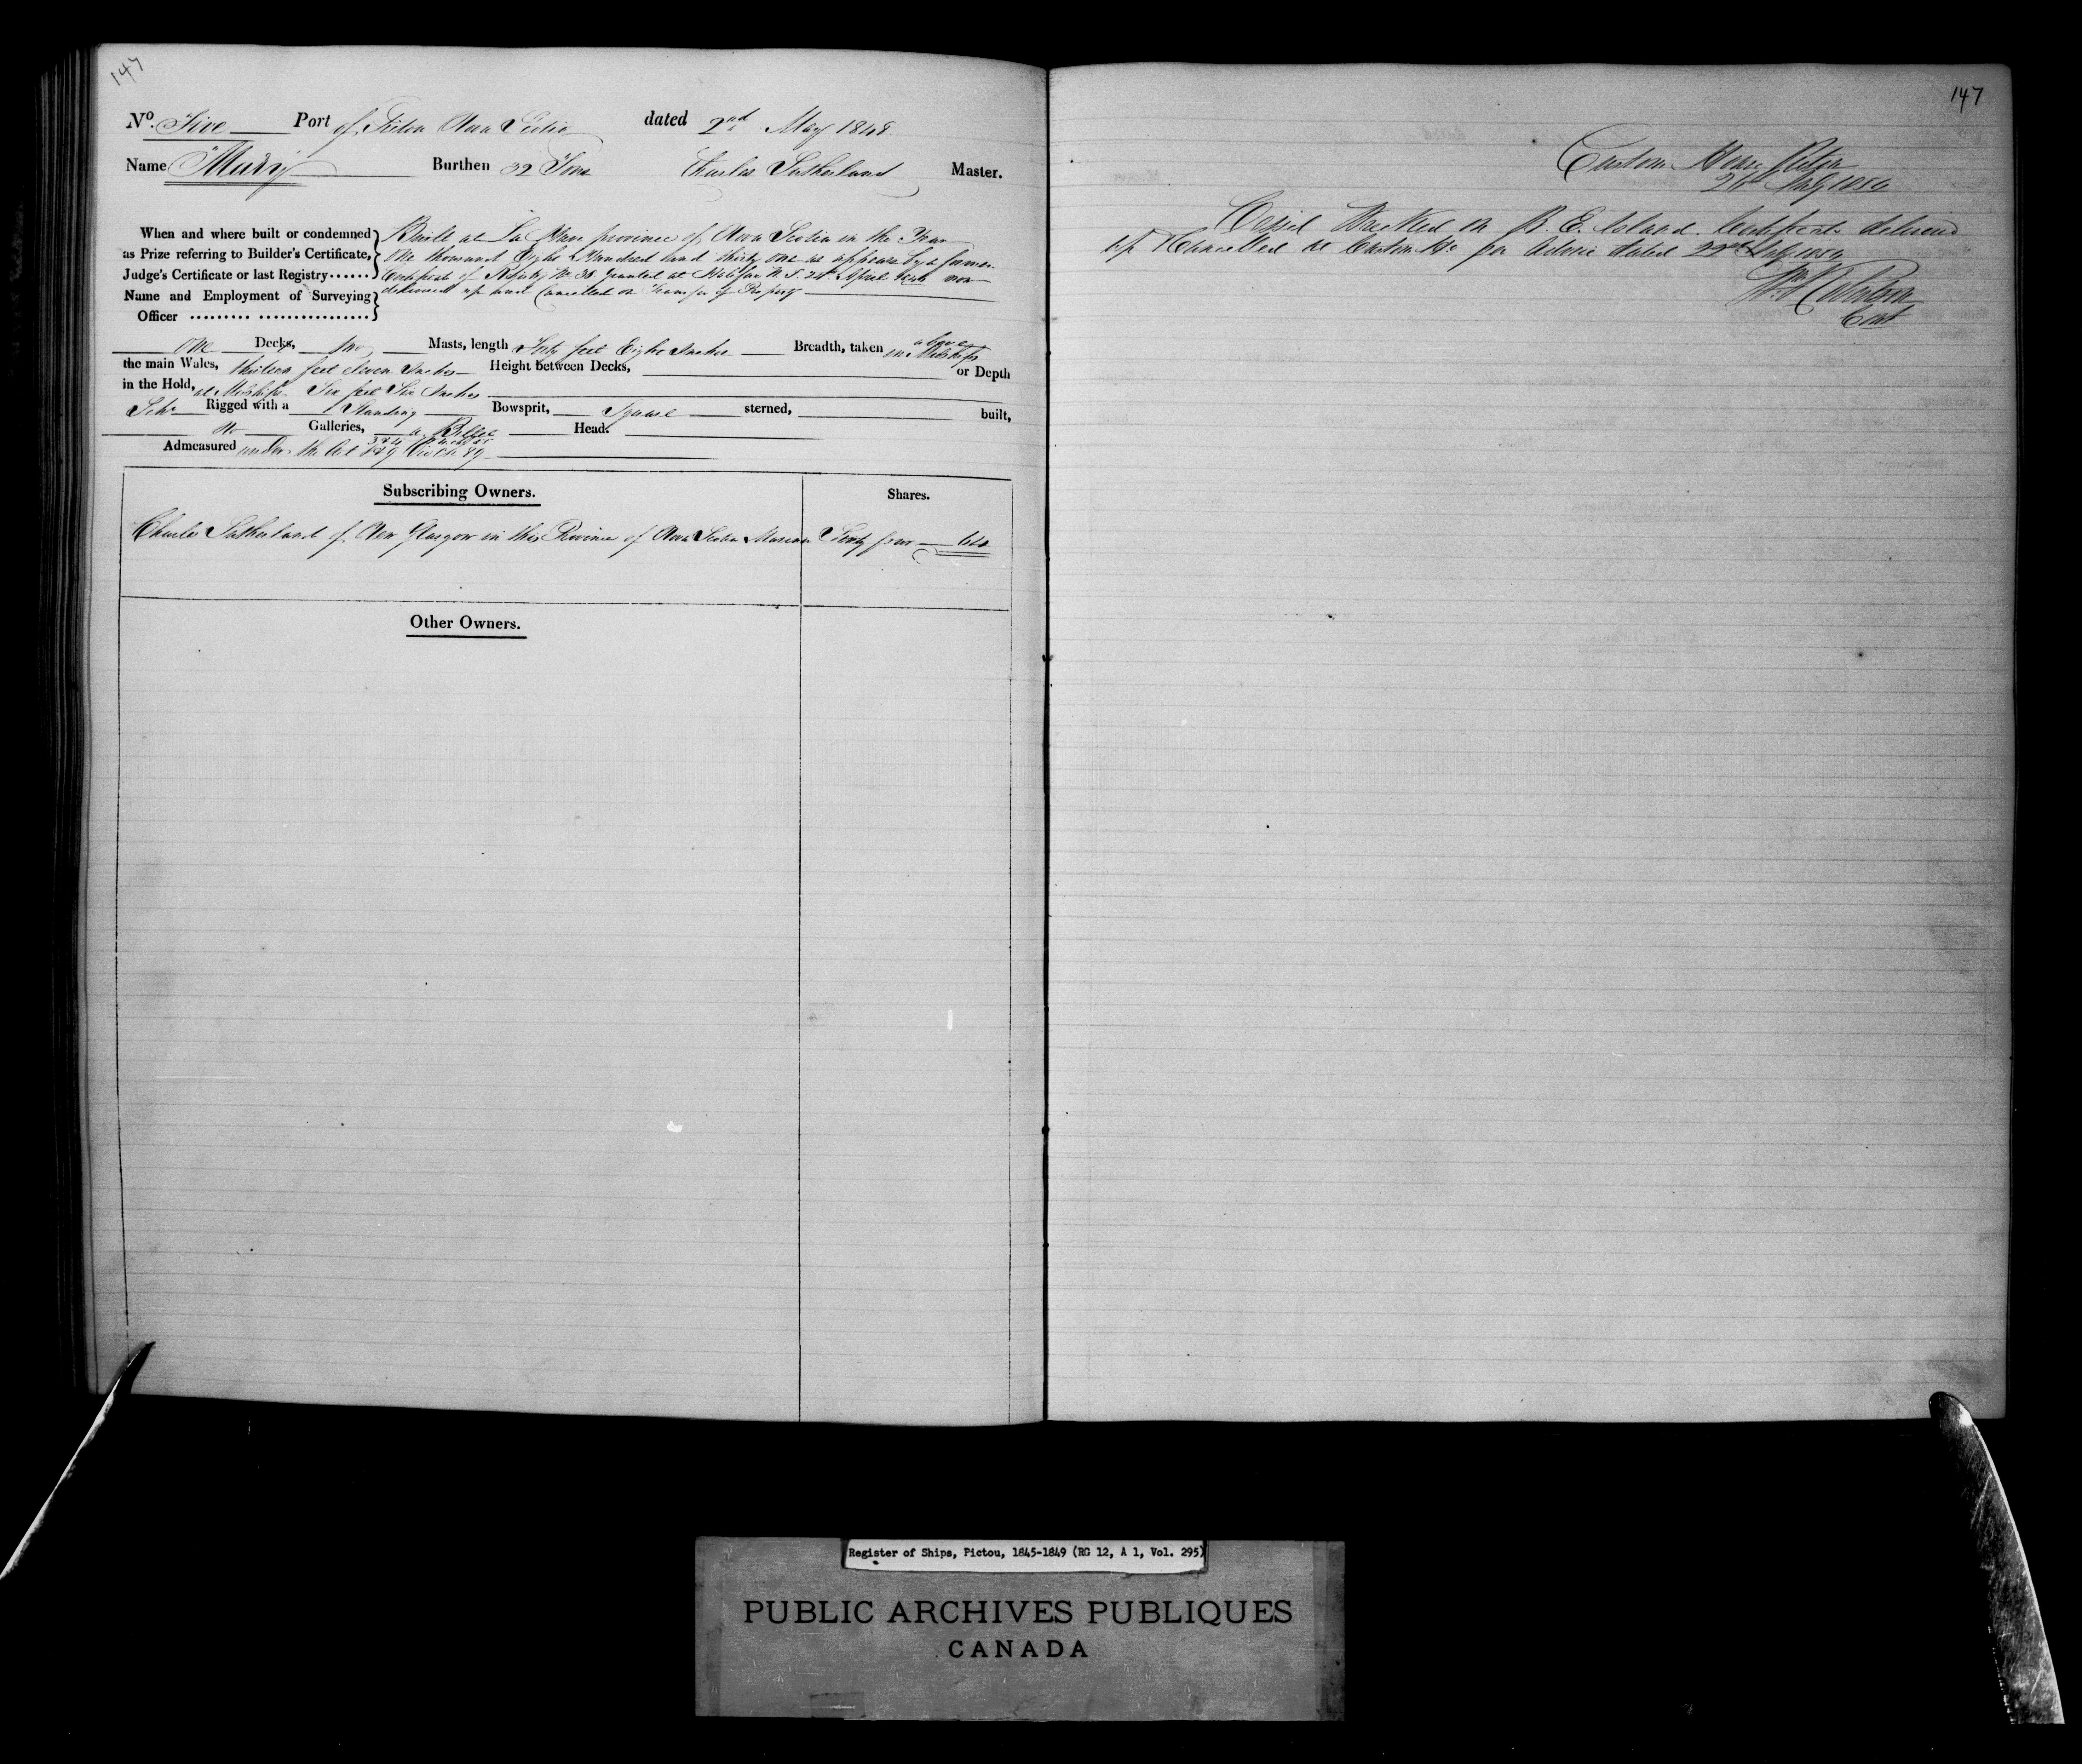 147
No. Five Port of Pictou Nova Scotia dated 2nd May 1848
Name "Mary" Burthen 32 Tons Charles Sutherland Master.
When and where built or condemned
as Prize referring to Builder's Certificate,
Judge's Certificate or last Registry
Name and Employment of Surveying
Officer
Built at La Have province of Nova Scotia in the Year
One thousand Eight Hundred and thirty one as appears by a former
Certificate of Registry No. 38 granted at Halifax N.S. 24th April now
delivered up and Cancelled on Transfer of Property
One Decks, two Masts, length Forty feet Eight Inches Breadth, taken above
the main Wales, thirteen feet Seven Inches Height between Decks, in Midships or Depth
in the Hold, at Midships Six feet Six Inches
Schr Rigged with a Standing Bowsprit, Square sterned, built,
no Galleries, a Billet Head.
Admeasured under the Act
Subscribing Owners. Shares.
Charles Sutherland of New Glasgow in this Province of Nova Scotia Mariner Sixty four 64
Other Owners.
147
Custom House Pictou
July 1850
Vessel Wrecked on P. E. Island. Certificate delivered
up & Cancelled at Custom Ho per advice dated 22nd July 1850
Cont
Register of Ships, Pictou, 1845-1849 (RG 12, A 1, Vol. 295)
PUBLIC ARCHIVES PUBLIQUES
CANADA